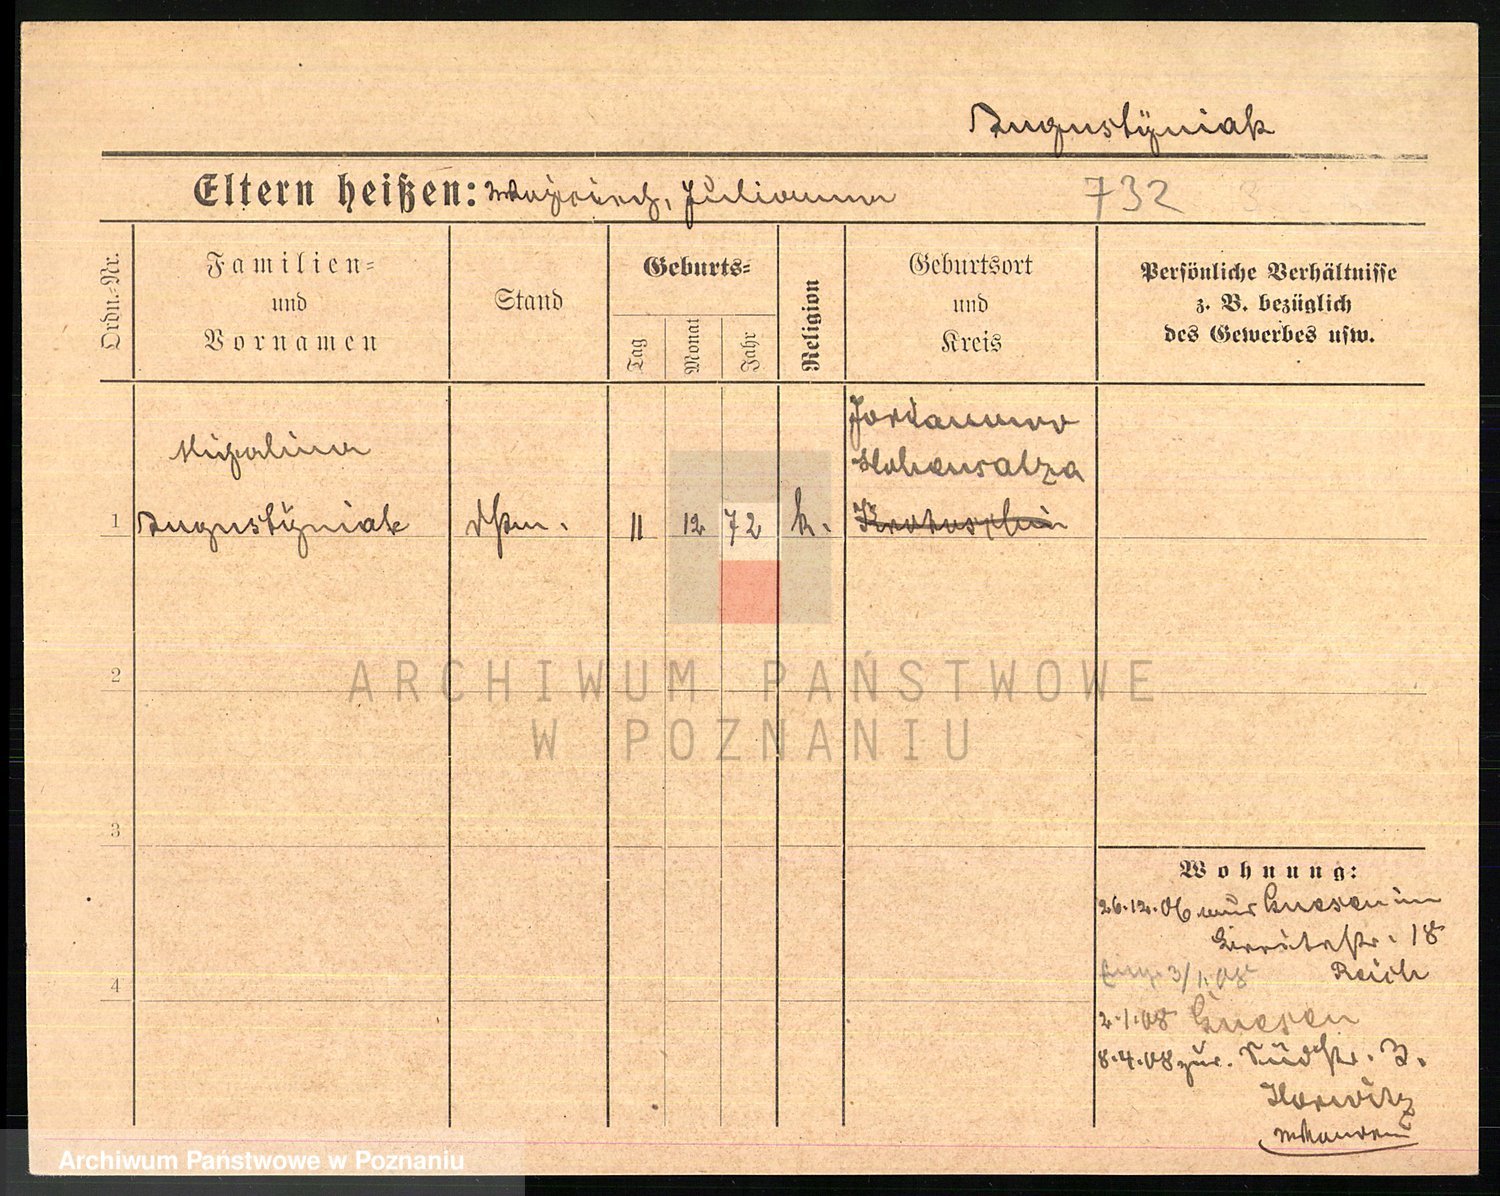 Augustyniak
Eltern heißen: Wojciech, Julianna 732
Ordn.-Nr.
Familien-
und
Vornamen
Stand
Geburts-
Tag
Monat
Jahr
Religion
Geburtsort
und
Kreis
Persönliche Verhältnisse
z. B. bezüglich
des Gewerbes usw.
Michalina
1 Augustyniak 11 12 72 k.
Hohensalza
Krotoschin
2
3
4
Wohnung:
26.12.06 Gnesen
18
3/1.08 Reich
2.1.08 Gnesen
8.4.08 zur. Südstr. 3.
Horwitz
ARCHIWUM PAŃSTWOWE
W POZNANIU
Archiwum Państwowe w Poznaniu